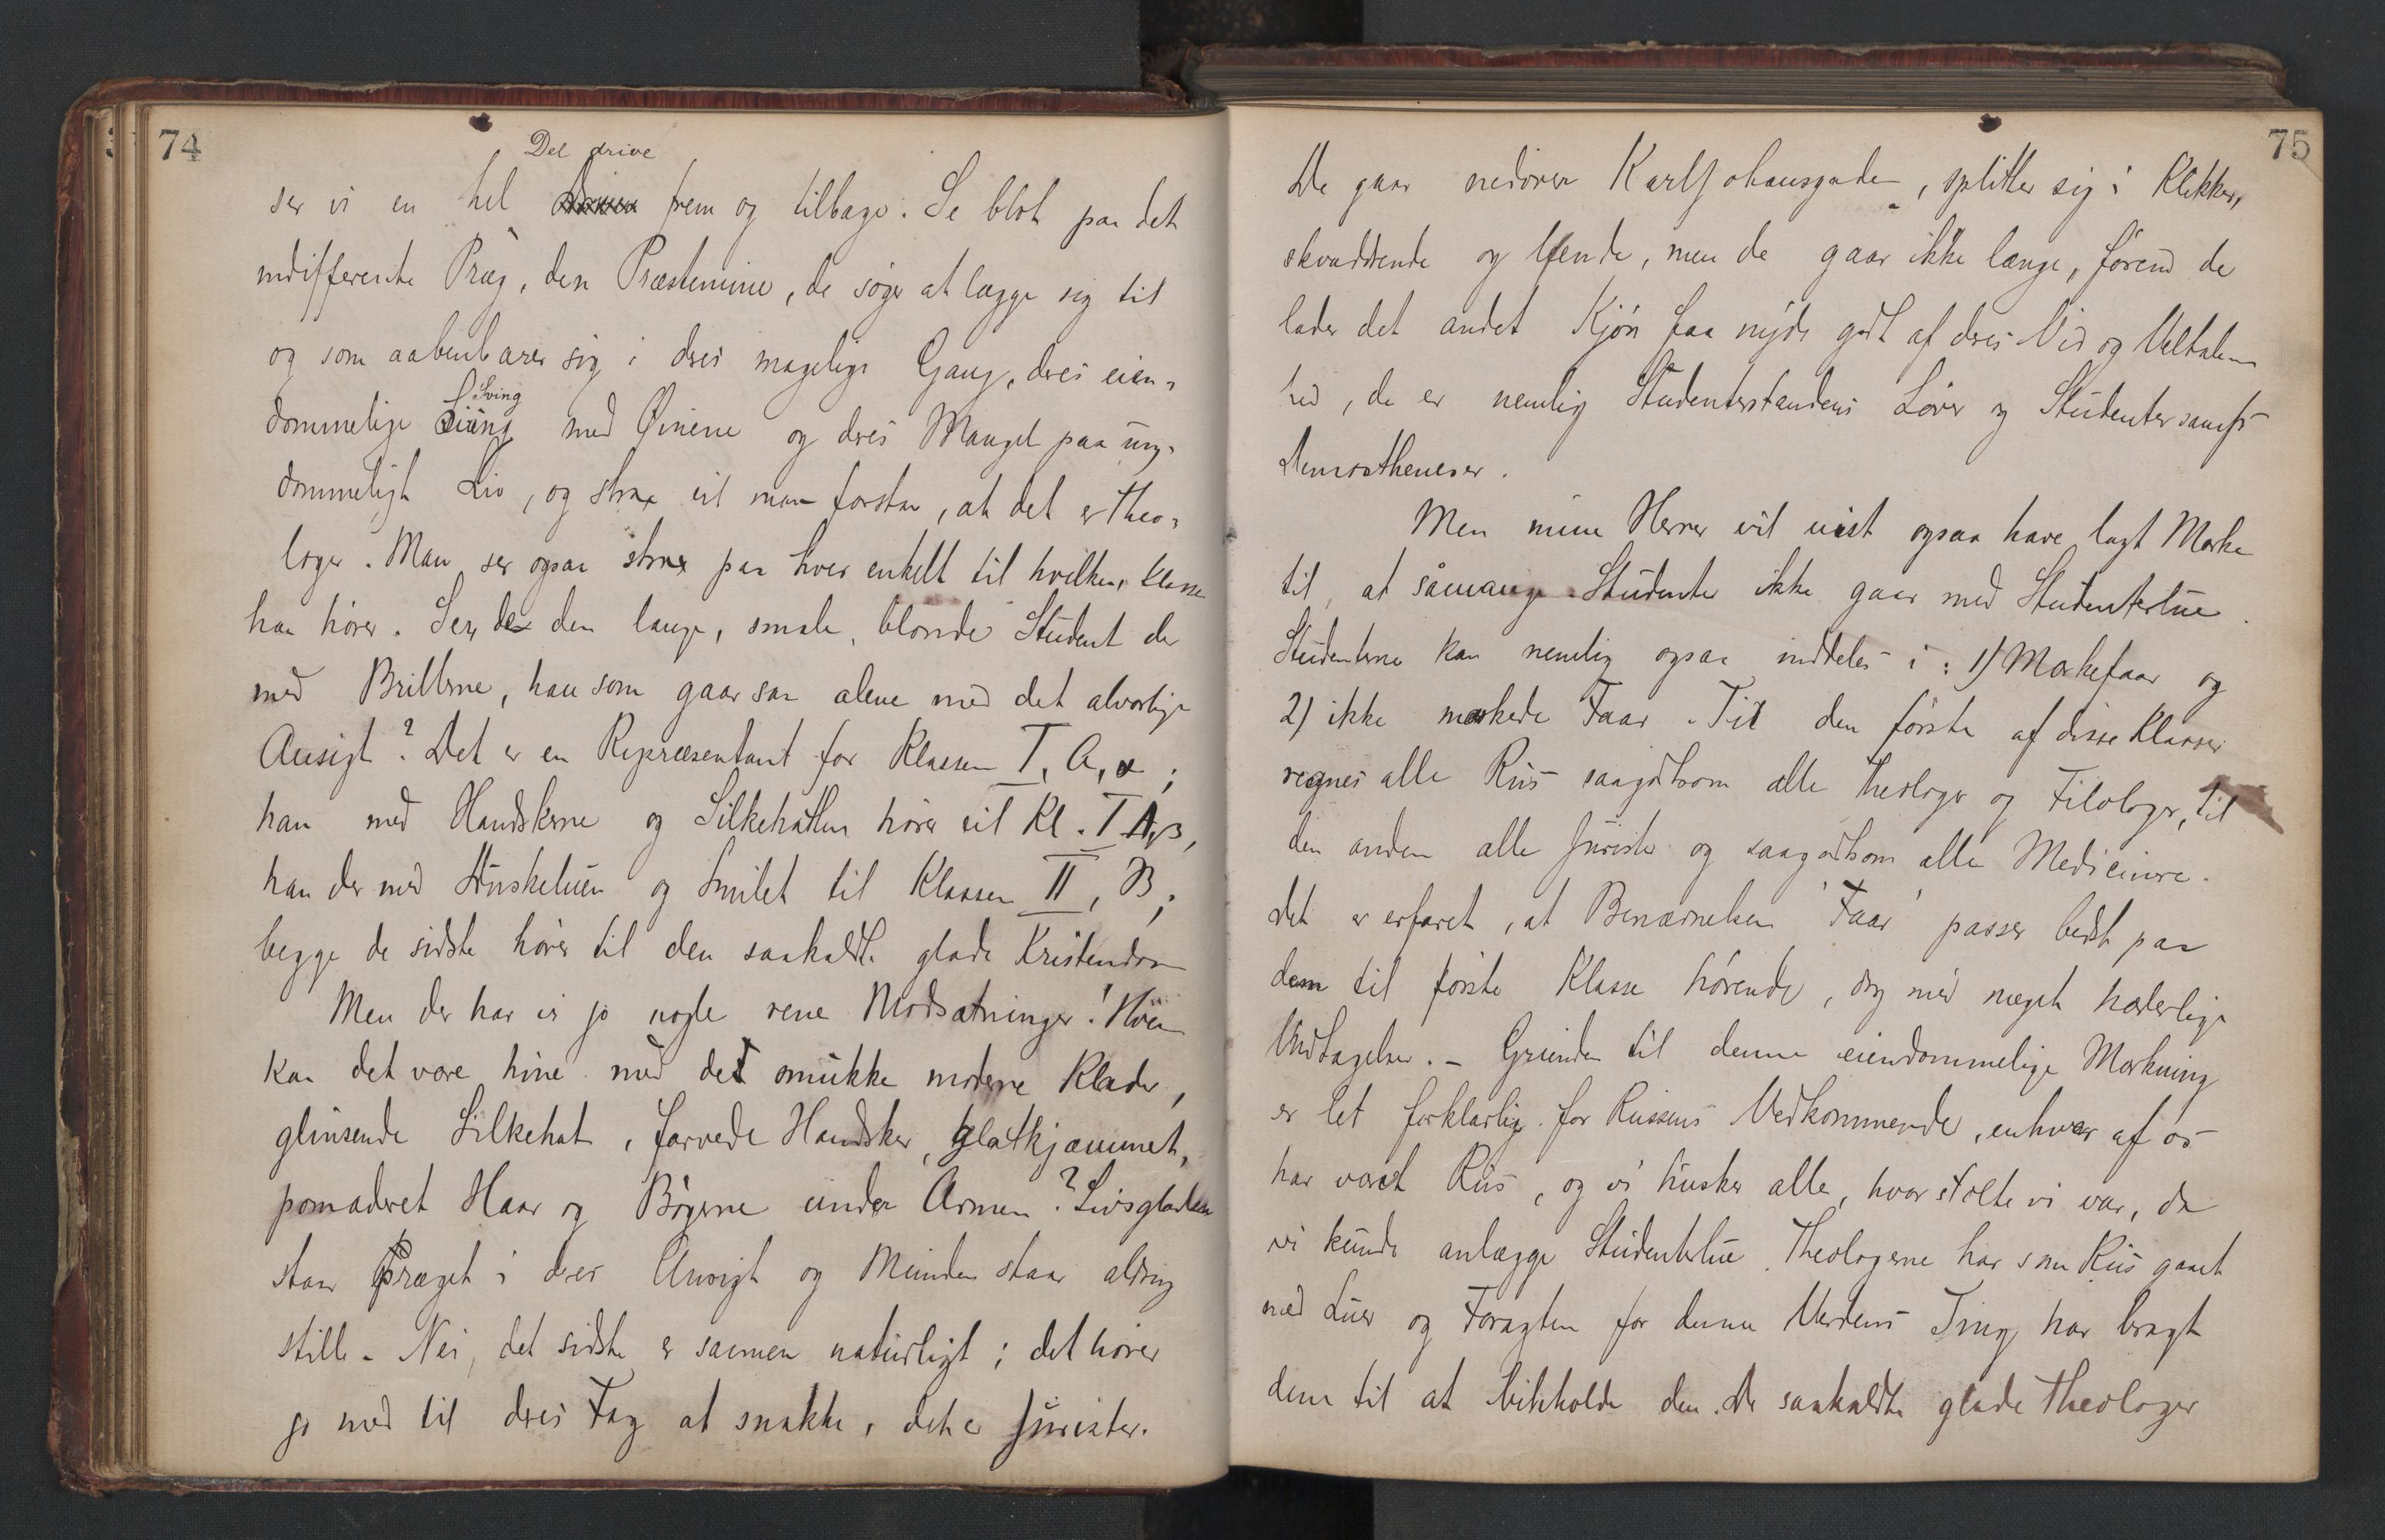 74
Del drive
ser vi en hel frem og tilbage. Se blot paa det
indifferente Præg, den Præstemine, de søger at lægge sig til
og som aabenbarer sig i deres magelige Gang, deres eien-
Sving
dommelige med Øinene og deres Mangel paa ung-
dommeligt Liv, og strax vil man forstaa, at det er Theo-
loger. Man ser ogsaa strax paa hver enkelt til hvilken Klasse
han hører. Ser de den lange, smale, blonde Student der
med Brillerne, han som gaar saa alene med det alvorlige
Ansigt? Det er en Repræsentant for Klassen I, A, α;
han med Handskerne og Silkehatten hører til Kl. I A, β,
han der med Duskeluen og Smilet til Klassen II, B;
begge de sidste hører til den saakaldte glade Kristendom
Men der har vi jo nogle rene Modsætninger! Hvem
kan det være hine med de smukke moderne Klæder,
glinsende Silkehat, farvede Handsker, glatkjæmmet,
pomaderet Haar og Bøgerne under Armen? Livsglæden
staar præget i deres Ansigt og Munden staar aldrig
stille - Nei, det sidste er sammen naturligt; det hører
jo med til deres Fag at snakke, det er Jurister.
75
De gaar nedover Karl Johansgade, splitter sig i Klikker,
skvaddrende og leende, men de gaar ikke længe, førend de
lader det andet Kjøn faa nyde godt af deres Vid og Veltalen-
hed, de er nemlig Studenterstandens Løver og Studentersamfs
Demostheneser.
Men mine Herrer vil vist ogsaa have lagt Mærke
til, at såmange Studenter ikke gaar med Studenterlue.
Studenterne kan nemlig ogsaa inddeles i: 1) Mærkefaar og
2) ikke mærkede Faar. Til den første af disse Klasser
regnes alle Rus saagodtsom alle Theologer og Filologer, til
den anden alle Jurister og saagodtsom alle Medicinere.
Det er erfaret, at Benævnelsen 'Faar' passer bedst paa
dem til første Klasse hørende, dog med meget hæderlige
Undtagelser. - Grunden til denne eiendommelige Mærkning
er let forklarlig for Russens Vedkommende, enhver af os
har været Rus, og vi husker alle, hvor stolte vi var, da
vi kunde anlægge Studenterlue. Theologerne har som Rus gaaet
med Luer og Foragten for denne Verdens Ting har bragt
dem til at bibeholde den. De saakaldte glade Theologer